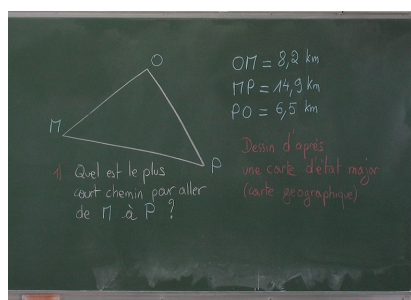 O
M
P
OM = 8,2 km
MP = 14,9 km
PO = 6,5 km
Dessin d'après
une carte d'état major
(carte géographique)
1) Quel est le plus
court chemin pour aller
de M à P ?